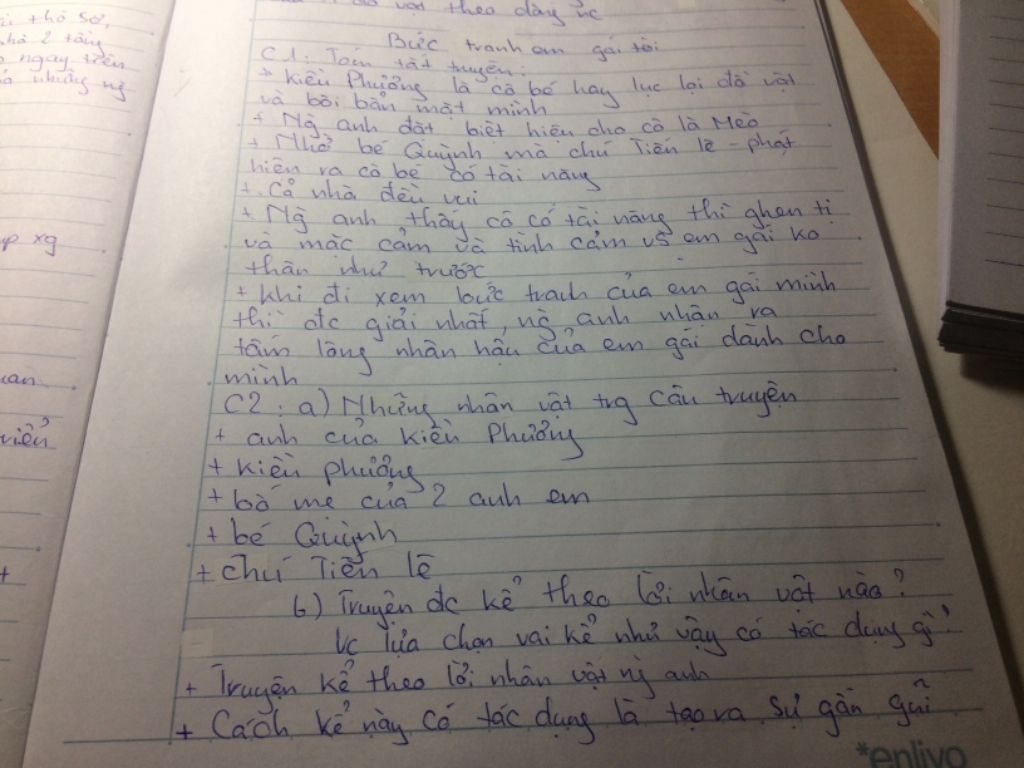 vật theo dây ức
Bức tranh em gái tôi
C1: Tóm tắt truyện:
+ Kiều Phương là cô bé hay lục lọi đồ vật
và bôi bẩn mặt mình
+ Ng anh đặt biệt hiệu cho cô là Mèo
+ Nhờ bé Quỳnh mà chú Tiến lê - phát
hiện ra cô bé có tài năng
+ Cả nhà đều vui
+ Ng anh thấy cô có tài năng thì ghen tị
và mặc cảm và tình cảm vs em gái ko
thân như trước
+ khi đi xem bức tranh của em gái mình
thì đc giải nhất, ng anh nhận ra
tấm lòng nhân hậu của em gái dành cho
mình
C2: a) Những nhân vật trg câu truyện
+ anh của Kiều Phương
+ Kiều phương
+ bố mẹ của 2 anh em
+ bé Quỳnh
+ chú Tiến lê
b) Truyện đc kể theo lời nhân vật nào?
Vc lựa chọn vai kể như vậy có tác dụng gì?
+ Truyện kể theo lời nhân vật ng anh
+ Cách kể này có tác dụng là tạo ra sự gần gũi
*enlivo
thô sơ,
nhà 2 tầng
ngay trên
những ng
xg